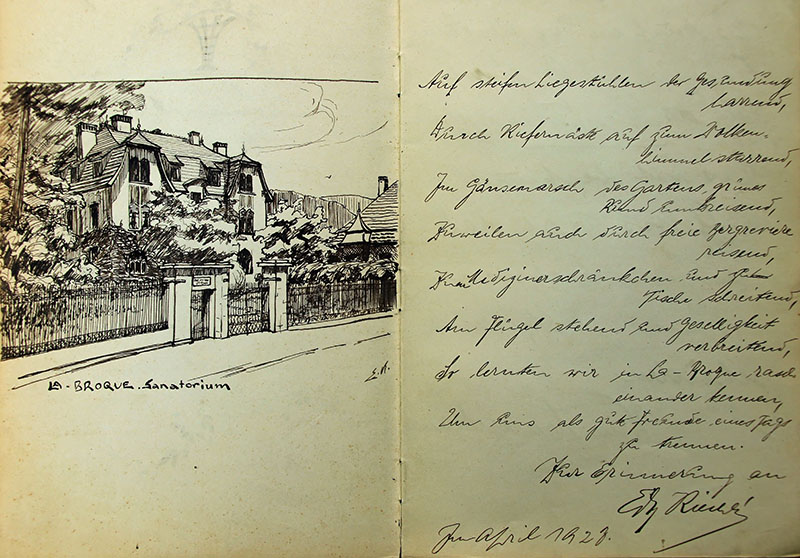 LA-BROQUE. Sanatorium
Auf steifen Liegestühlen der Gesundung
harrend,
Durch Kiefernäste auf zum Wolken-
himmel starrend,
Im Gänsemarsch des Gartens grünes
Rund umkreisend,
Zuweilen auch durch freie Bergreviere
reisend,
Zum Medizinerschränkchen und zu
Tische schreitend,
Am Flügel stehend und Geselligkeit
verbreitend,
So lernten wir in La-Broque rasch
einander kennen,
Um uns als gute Freunde eines Tags
zu trennen.
Zur Erinnerung an
Im April 1929.